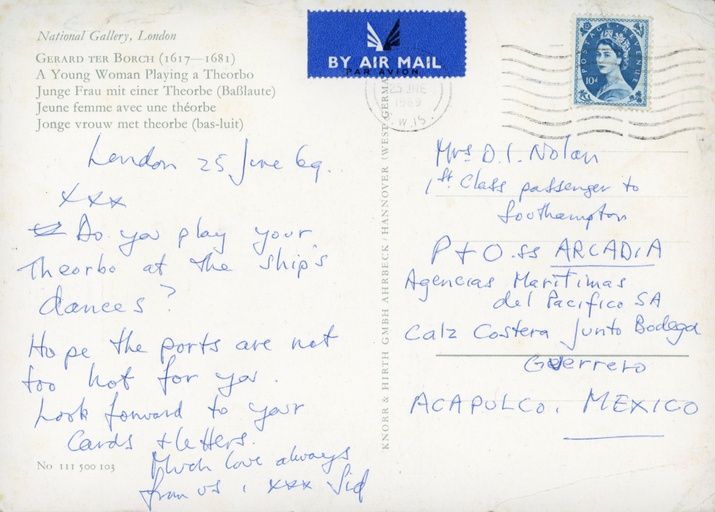 National Gallery, London
GERARD TER BORCH (1617—1681)
A Young Woman Playing a Theorbo
Junge Frau mit einer Theorbe (Baßlaute)
Jeune femme avec une théorbe
Jonge vrouw met theorbe (bas-luit)
BY AIR MAIL
PAR AVION
25 JNE
1969
W.15
POSTAGE REVENUE
10D
London 25 June 69.
xxx
Do you play your
Theorbo at the ship's
dances?
Hope the ports are not
too hot for you.
Look forward to your
Cards + letters.
Much love always
from us, xxx Sid
No 111 500 103
KNORR & HIRTH GMBH AHRBECK/HANNOVER (WEST-GERMA
Mrs D. I. Nolan
1st Class passenger to
Southampton
P + O. ss ARCADIA
Agencias Maritimas
del Pacifico SA
Calz Costera Junto Bodega
Guerrero
ACAPULCO. MEXICO